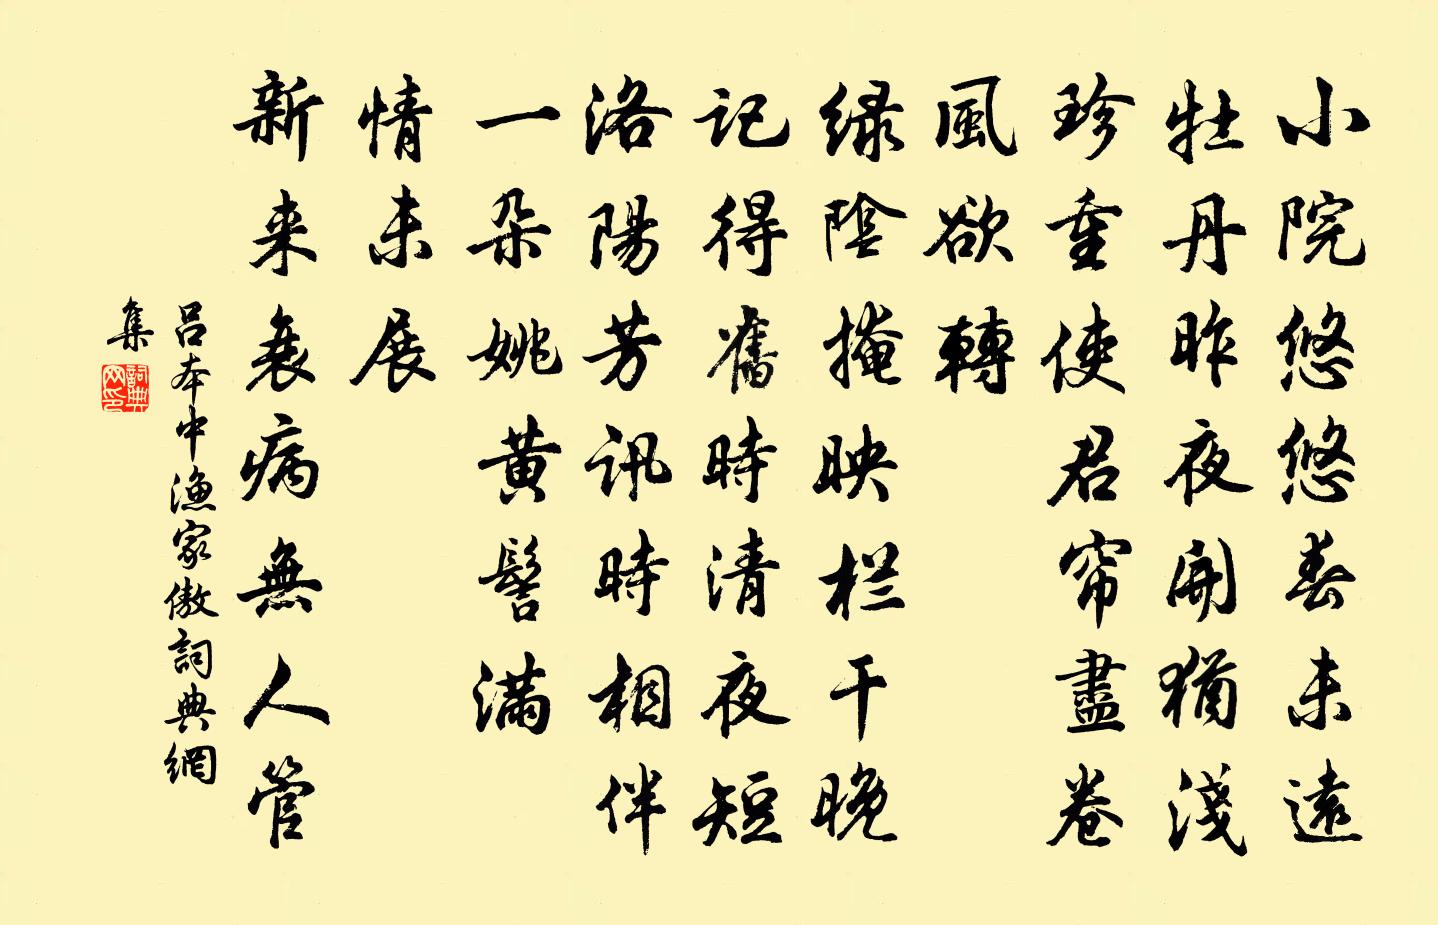 小院悠悠春未遠
牡丹昨夜開猶淺
珍重使君帘盡卷
風欲轉
绿陰掩映栏干晚
記得舊時清夜短
洛陽芳訊時相伴
一朵姚黄髻满
情未展
新来衰病無人管
吕本中漁家傲詞典網
集
詞典网印